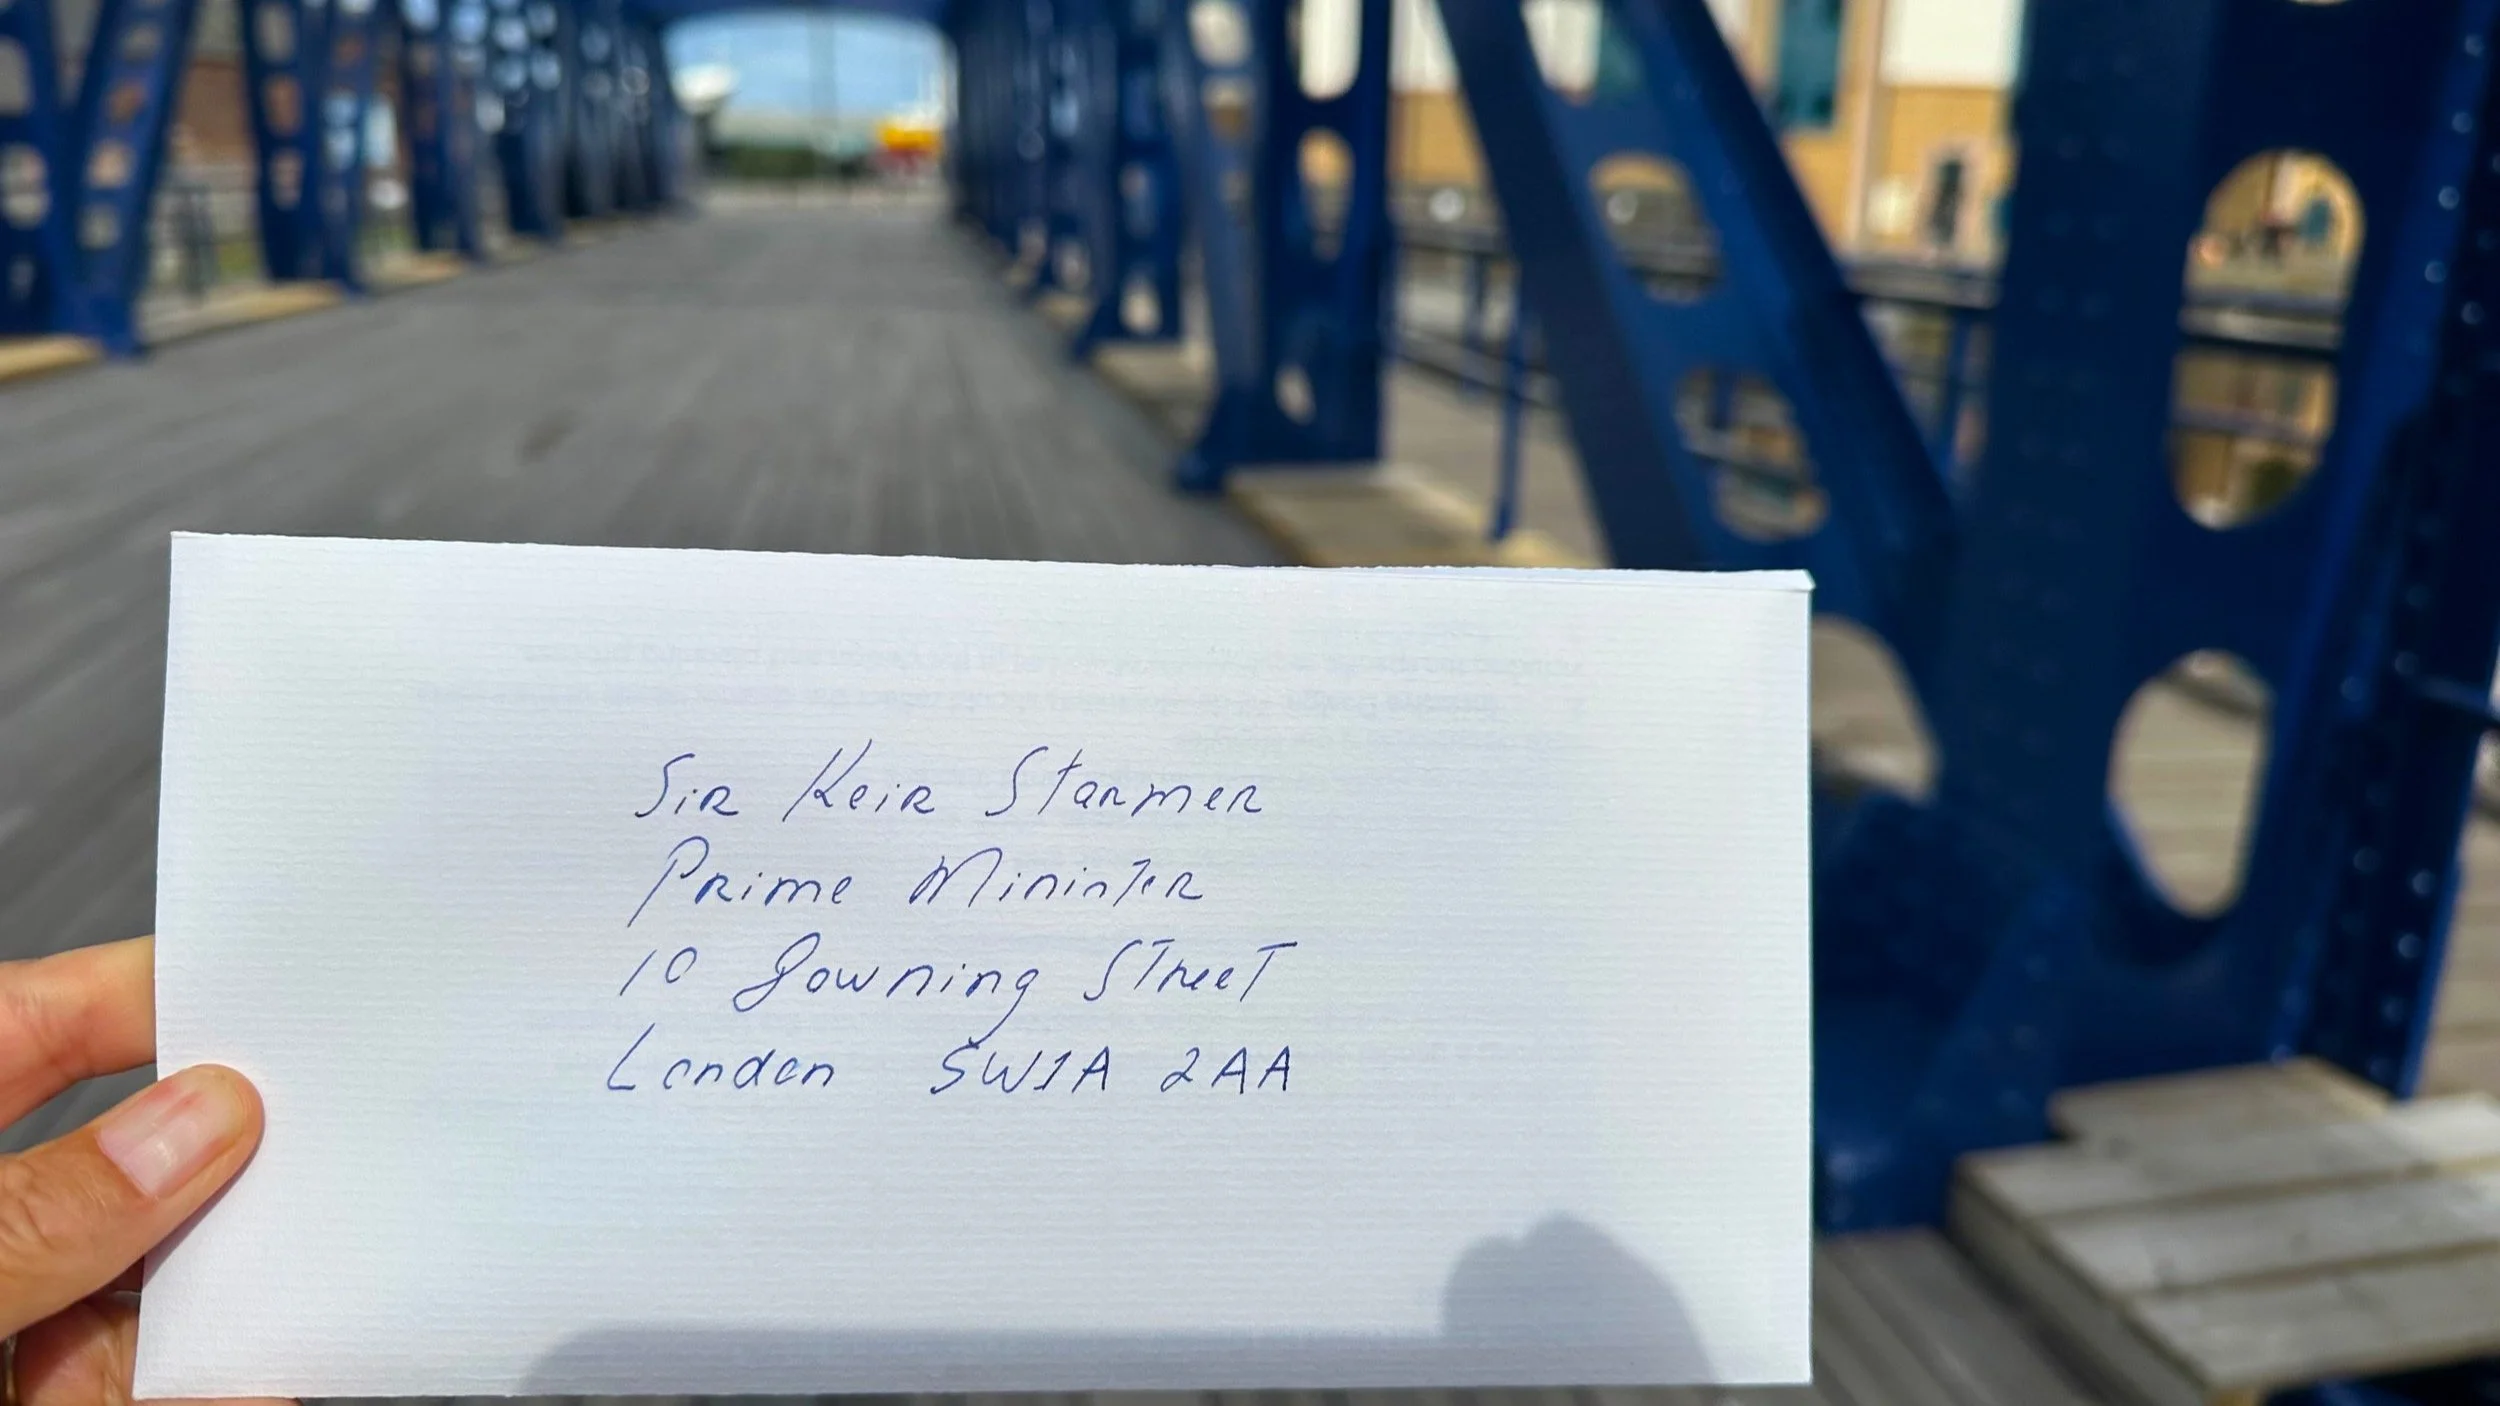 Sir Keir Starmer
Prime Minister
10 Downing Street
London SW1A 2AA